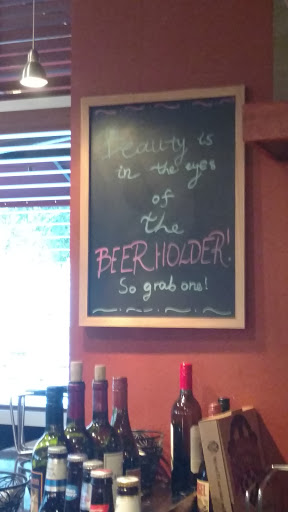 Beauty is
in the eyes
of
the
BEER HOLDER!
So grab one!